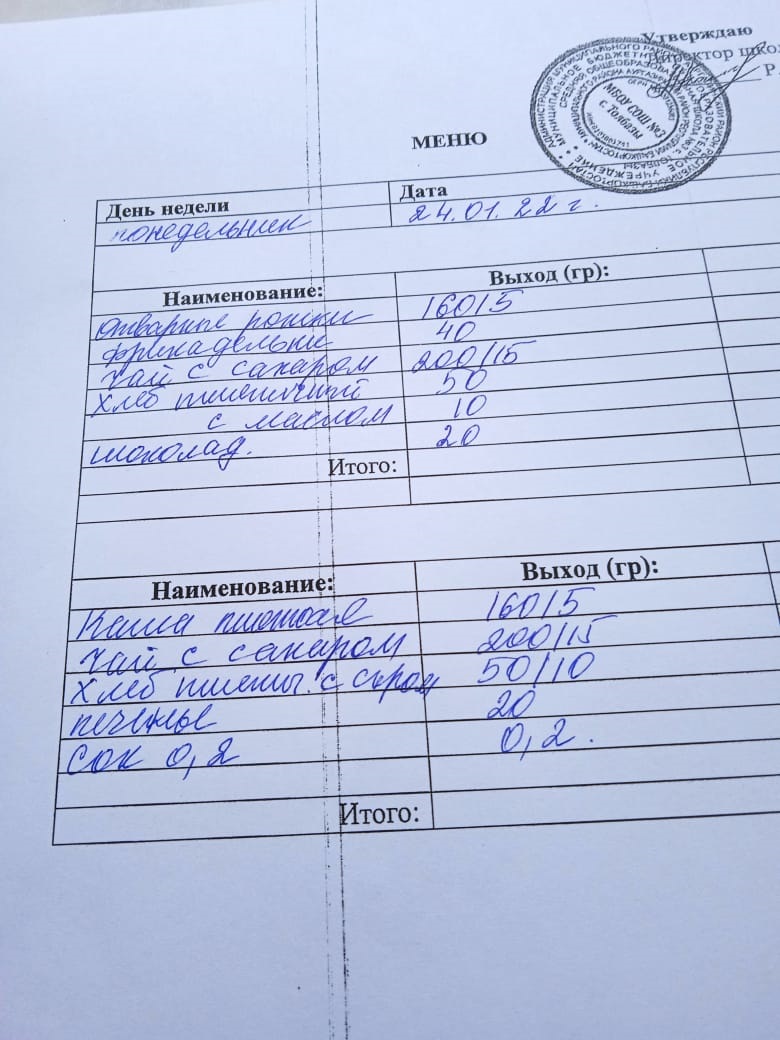 Утверждаю
Директор школ
Р.
МБОУ СОШ №3
с. Толбазы
МЕНЮ
День недели Дата
понедельник 24.01.22 г.
Наименование: Выход (гр):
Отварные рожки 160/5
фрикадельки 40
Чай с сахаром 200/15
Хлеб пшеничный 50
с маслом 10
шоколад. 20
Итого:
Наименование: Выход (гр):
Каша пшенная 160/5
Чай с сахаром 200/15
Хлеб пшены. с сыром 50/10
печенье 20
Сок 0,2 0,2.
Итого: